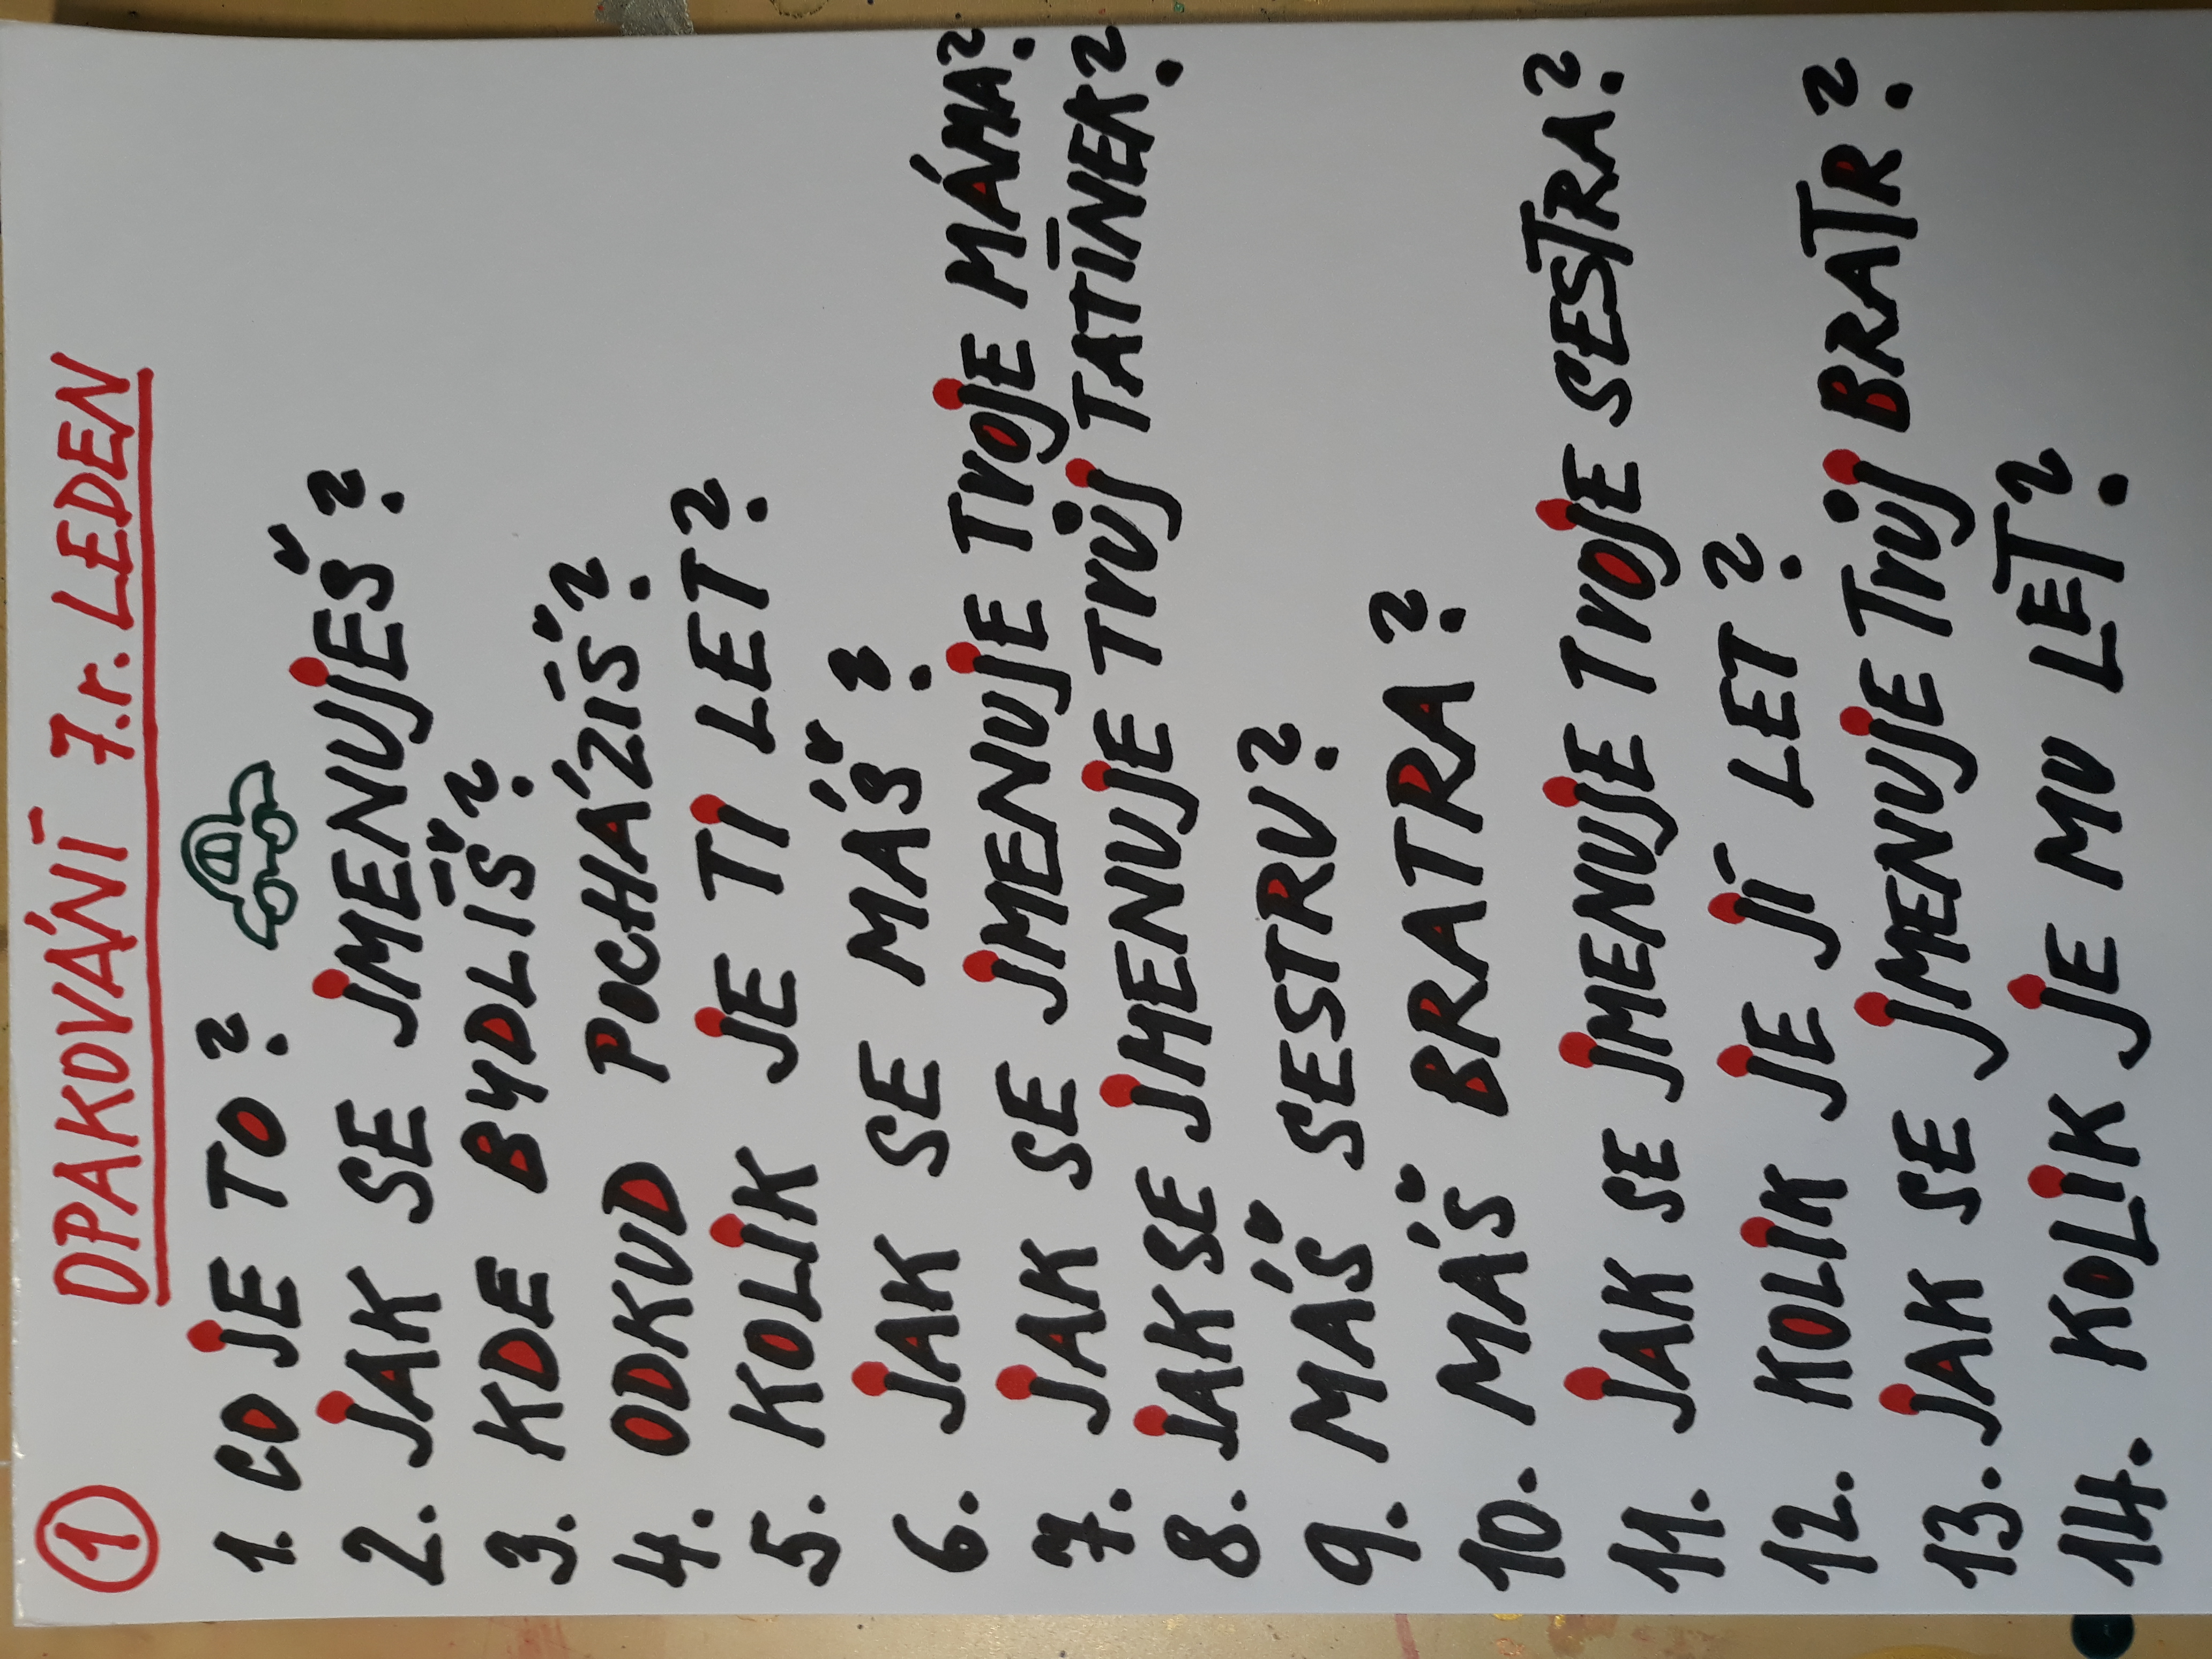 1 OPAKOVÁNÍ 7.r. LEDEN
1. CO JE TO?
2. JAK SE JMENUJEŠ?
3. KDE BYDLÍŠ?
4. ODKUD POCHÁZÍŠ?
5. KOLIK JE TI LET?
6. JAK SE MÁŠ?
7. JAK SE JMENUJE TVOJE MÁMA?
8. JAK SE JMENUJE TVŮJ TATÍNEK?
9. MÁŠ SESTRU?
10. MÁŠ BRATRA?
11. JAK SE JMENUJE TVOJE SESTRA?
12. KOLIK JE JÍ LET?
13. JAK SE JMENUJE TVŮJ BRATR?
14. KOLIK JE MU LET?